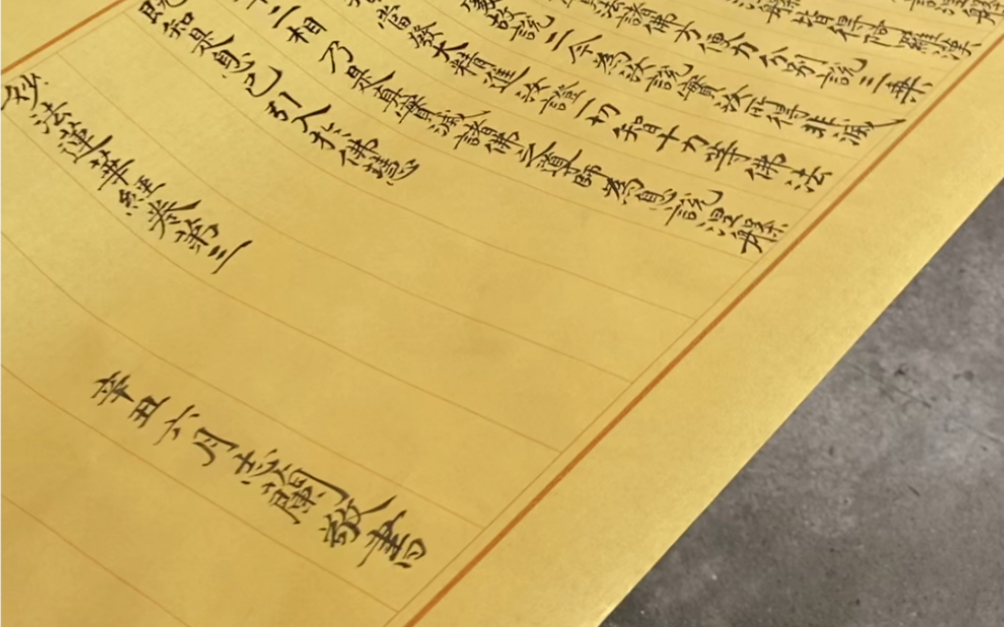 皆得阿羅漢
法諸佛方便力分別說三乘
處故說二今為汝說實汝所得非滅
智當發大精進汝證一切智十力等佛法
十二相乃是真實滅諸佛之導師為息說涅槃
既知是息已引入於佛慧
妙法蓮華經卷第三
辛丑六月志蘭敬書